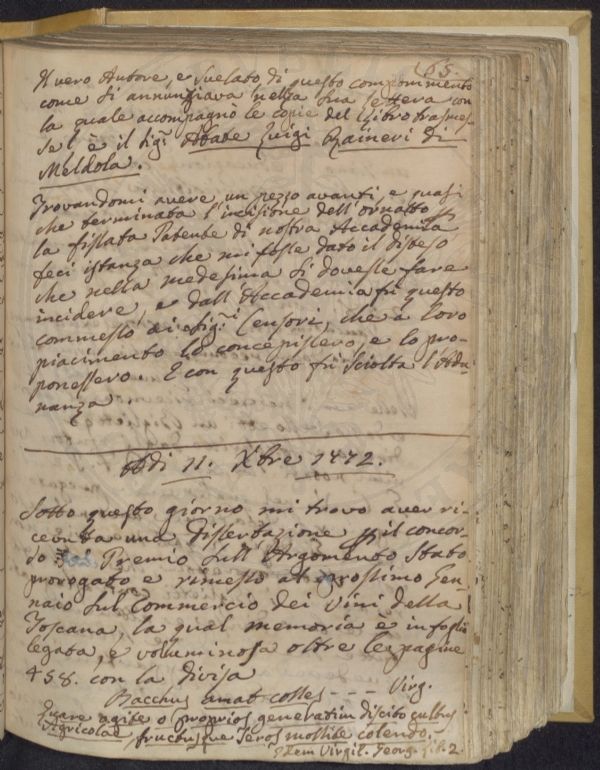 65.
Il vero Autore, e svelato di questo componimento
come si annunziava nella sua lettera con
la quale accompagnò le copie del Libro trasmes-
se l è il Sig.r Abate Luigi Raineri di
Meldola.
Trovandomi avere un pezzo avanti, e quasi
che terminata l'incisione dell'ornatto
la fissata Patente di nostra Accademia
feci istanza che mi fosse dato il disteso
che nella medesima si dovesse fare
incidere, e dall'Accademia fù questo
commesso ai Sig.ri Censori, che a loro
piacimento lo concepissero, e lo pro-
ponessero. E con questo fù sciolta l'Adu-
nanza.
Adi 11. Xbre 1772.
Sotto questo giorno mi trovo aver ri-
ceuta una dissertazione il concor-
so Premio sull'Argomento Stato
prorogato e rimesso al prossimo Gen-
naio sul Commercio dei Vini della
Toscana, la qual memoria è in foglio
legata, e voluminosa oltre le pagine
458. con la divisa
Bacchus amat colles - - - Virg.
Quare agite o proprios generatim discite cultus
Agricolae, fructusque feros mollite colendo.
Idem Virgil. Georg. lib. 2.